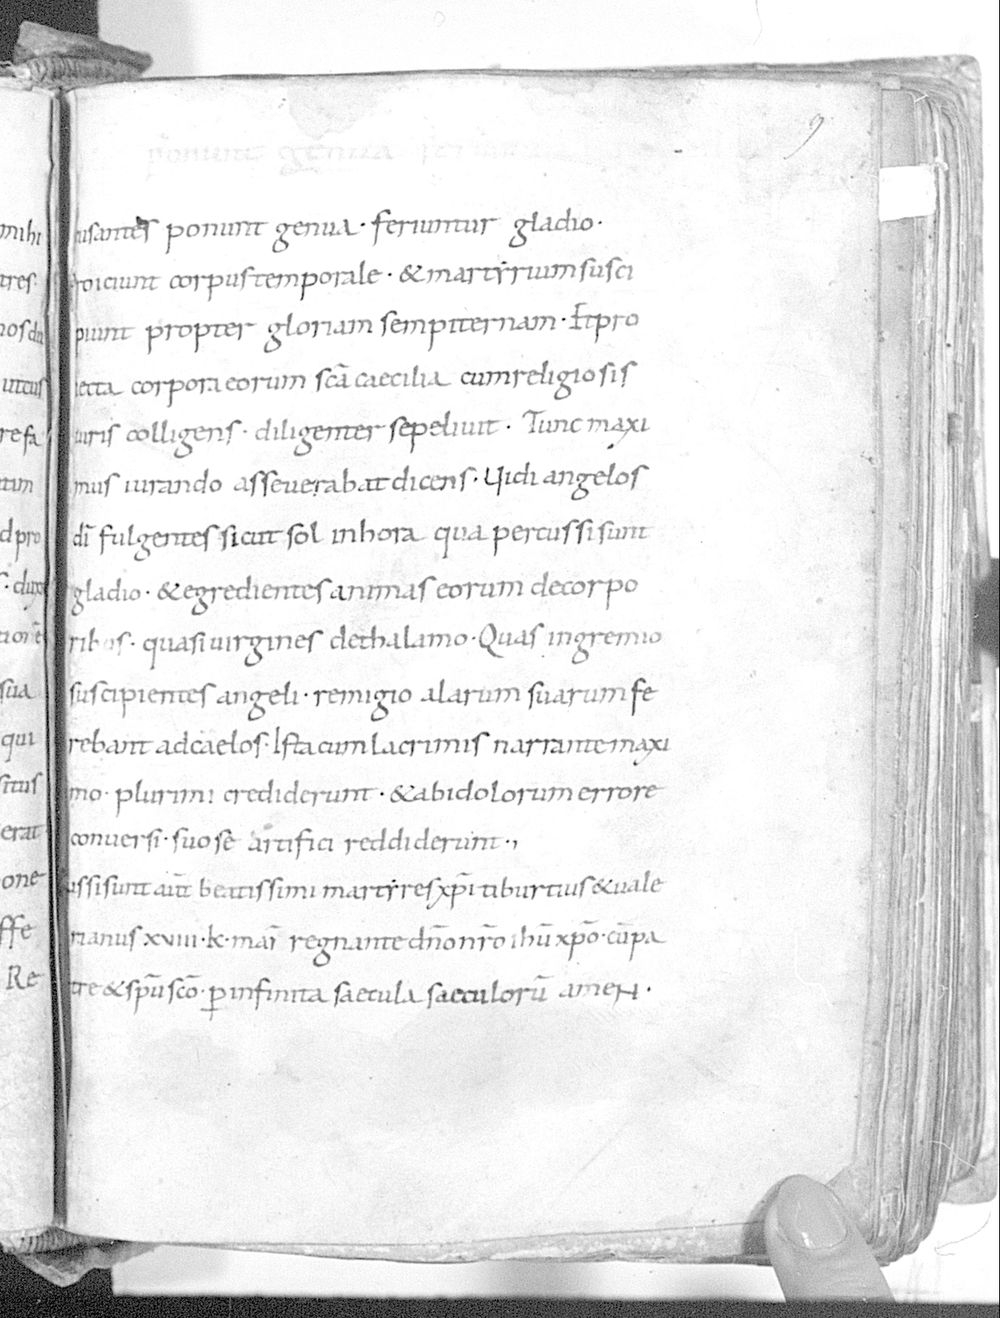 9
usantes ponunt genua · feriuntur gladio ·
roiciunt corpus temporale · & martyrium susci
piunt propter gloriam sempiternam · Et pro
iecta corpora eorum scā caecilia cum religiosis
uiris colligens · diligenter sepeliuit · Tunc maxi
mus iurando asseuerabat dicens · Uidi angelos
dī fulgentes sicut sol in hora qua percussi sunt
gladio · & egredientes animas eorum de corpo
ribus · quasi uirgines de thalamo · Quas in gremio
suscipientes angeli · remigio alarum suarum fe
rebant ad caelos · Ista cum lacrimis narrante maxi
mo · plurimi crediderunt · & ab idolorum errore
conuersi · suo se artifici reddiderunt ·,
assi sunt aūt beatissimi martyres xp̄i tiburtius & uale
rianus xviii · k · mai̅ regnante dn̄o nr̄o ihū xp̄o · cū pa
tre & sp̄u scō · ꝑ infinita saecula saeculorū amen ·
mihi
tres·
nos dn
utcus
re fa
tim
d pro
s · dux
tionē
sua
qui
situs
erat
one
ffe
Re